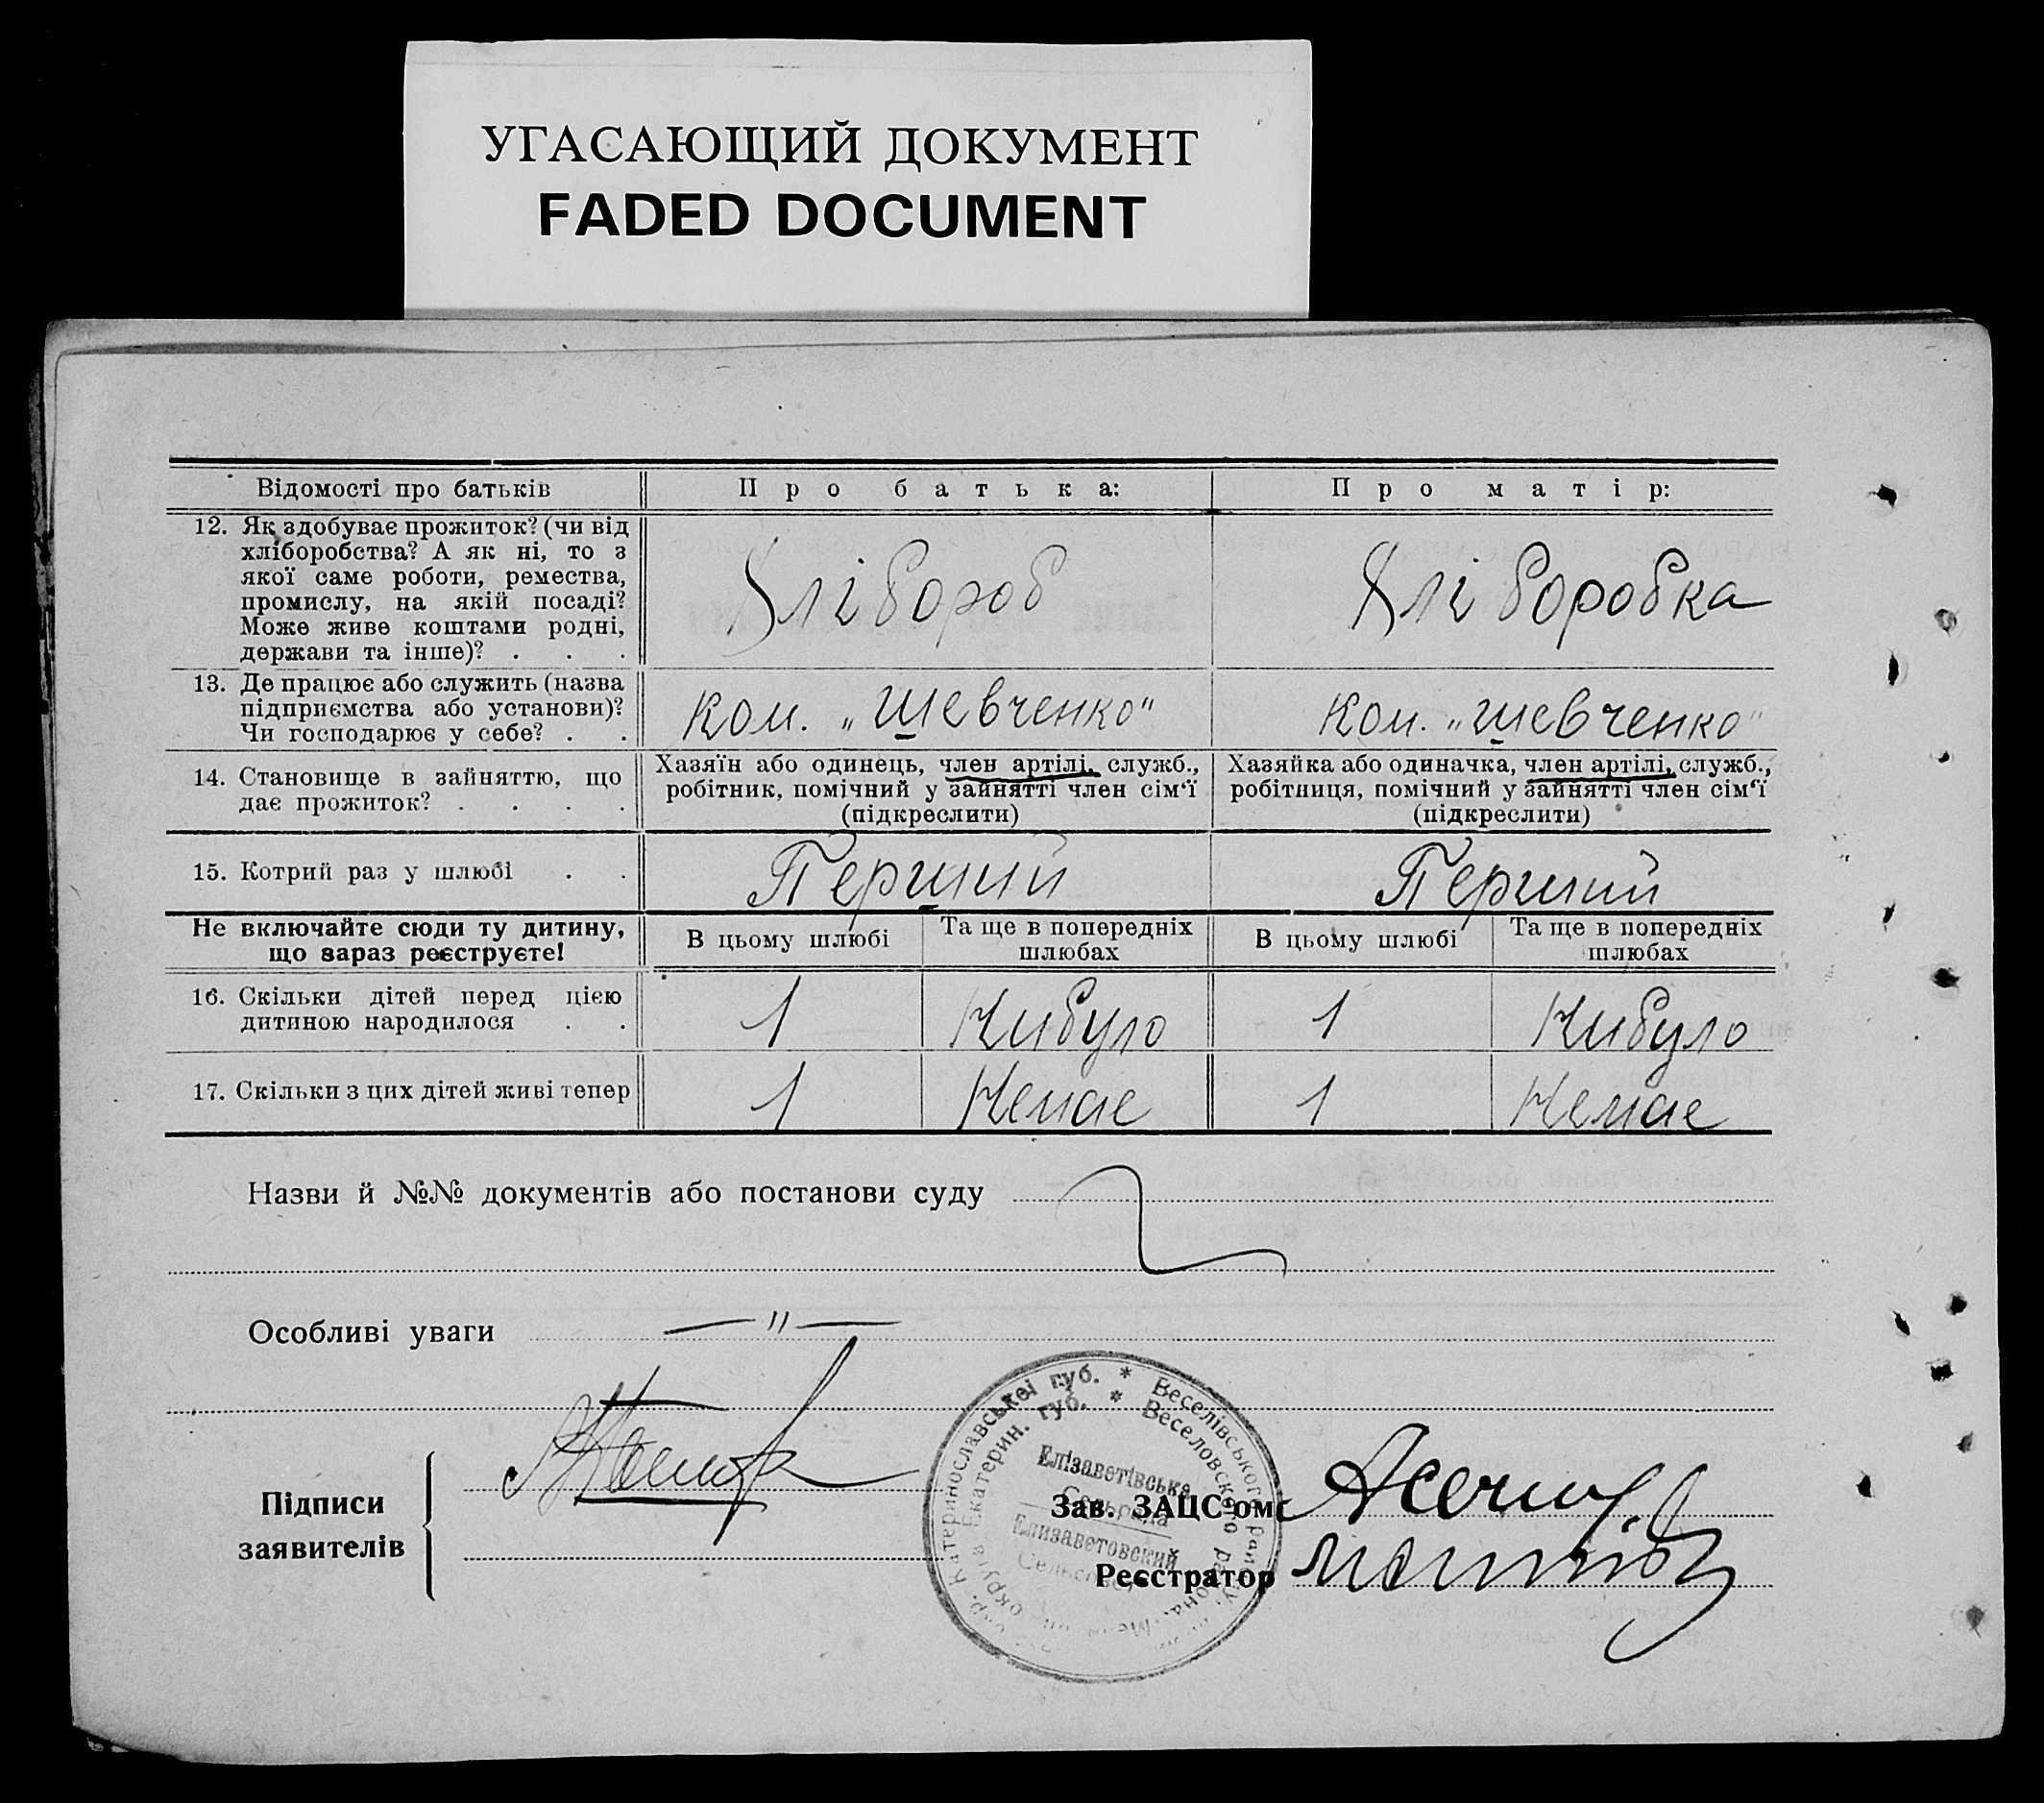 УГАСАЮЩИЙ ДОКУМЕНТ
FADED DOCUMENT
Відомості про батьків
Про батька:
Про матір:
12. Як здобуває прожиток? (чи від
хліборобства? А як ні, то з
якої саме роботи, ремества,
промислу, на якій посаді?
Може живе коштами родні,
держави та інше)? . . .
Хлібороб
Хліборобка
13. Де працює або служить (назва
підприємства або установи)?
Чи господарює у себе? . .
ком. „Шевченко"
ком. „Шевченко"
14. Становище в зайняттю, що
дає прожиток? . . . .
Хазяїн або одинець, член артілі, служб.,
робітник, помічний у зайнятті член сім'ї
(підкреслити)
Хазяйка або одиначка, член артілі, служб.,
робітниця, помічний у зайнятті член сім'ї
(підкреслити)
15. Котрий раз у шлюбі . .
Перший
Перший
Не включайте сюди ту дитину,
що зараз реєструєте!
В цьому шлюбі
Та ще в попередніх
шлюбах
В цьому шлюбі
Та ще в попередніх
шлюбах
16. Скільки дітей перед цією
дитиною народилося . .
1
Нибуло
1
Нибуло
17. Скільки з цих дітей живі тепер
1
Немає
1
Немає
Назви й №№ документів або постанови суду
Особливі уваги
—"—
Підписи
заявителів
Катеринославської губ. * Веселівського району.
округа Екатерин. губ. * Веселовского района.
Елізаветівська
Сельрада
Елизаветовский
Сельсовет
Зав. ЗАЦС'ом
Реєстратор